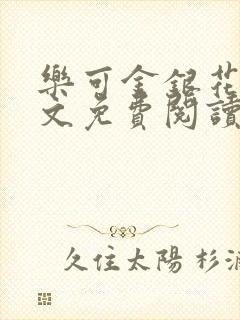 樂可金銀花
文免費閱讀
久住太陽 杉浦